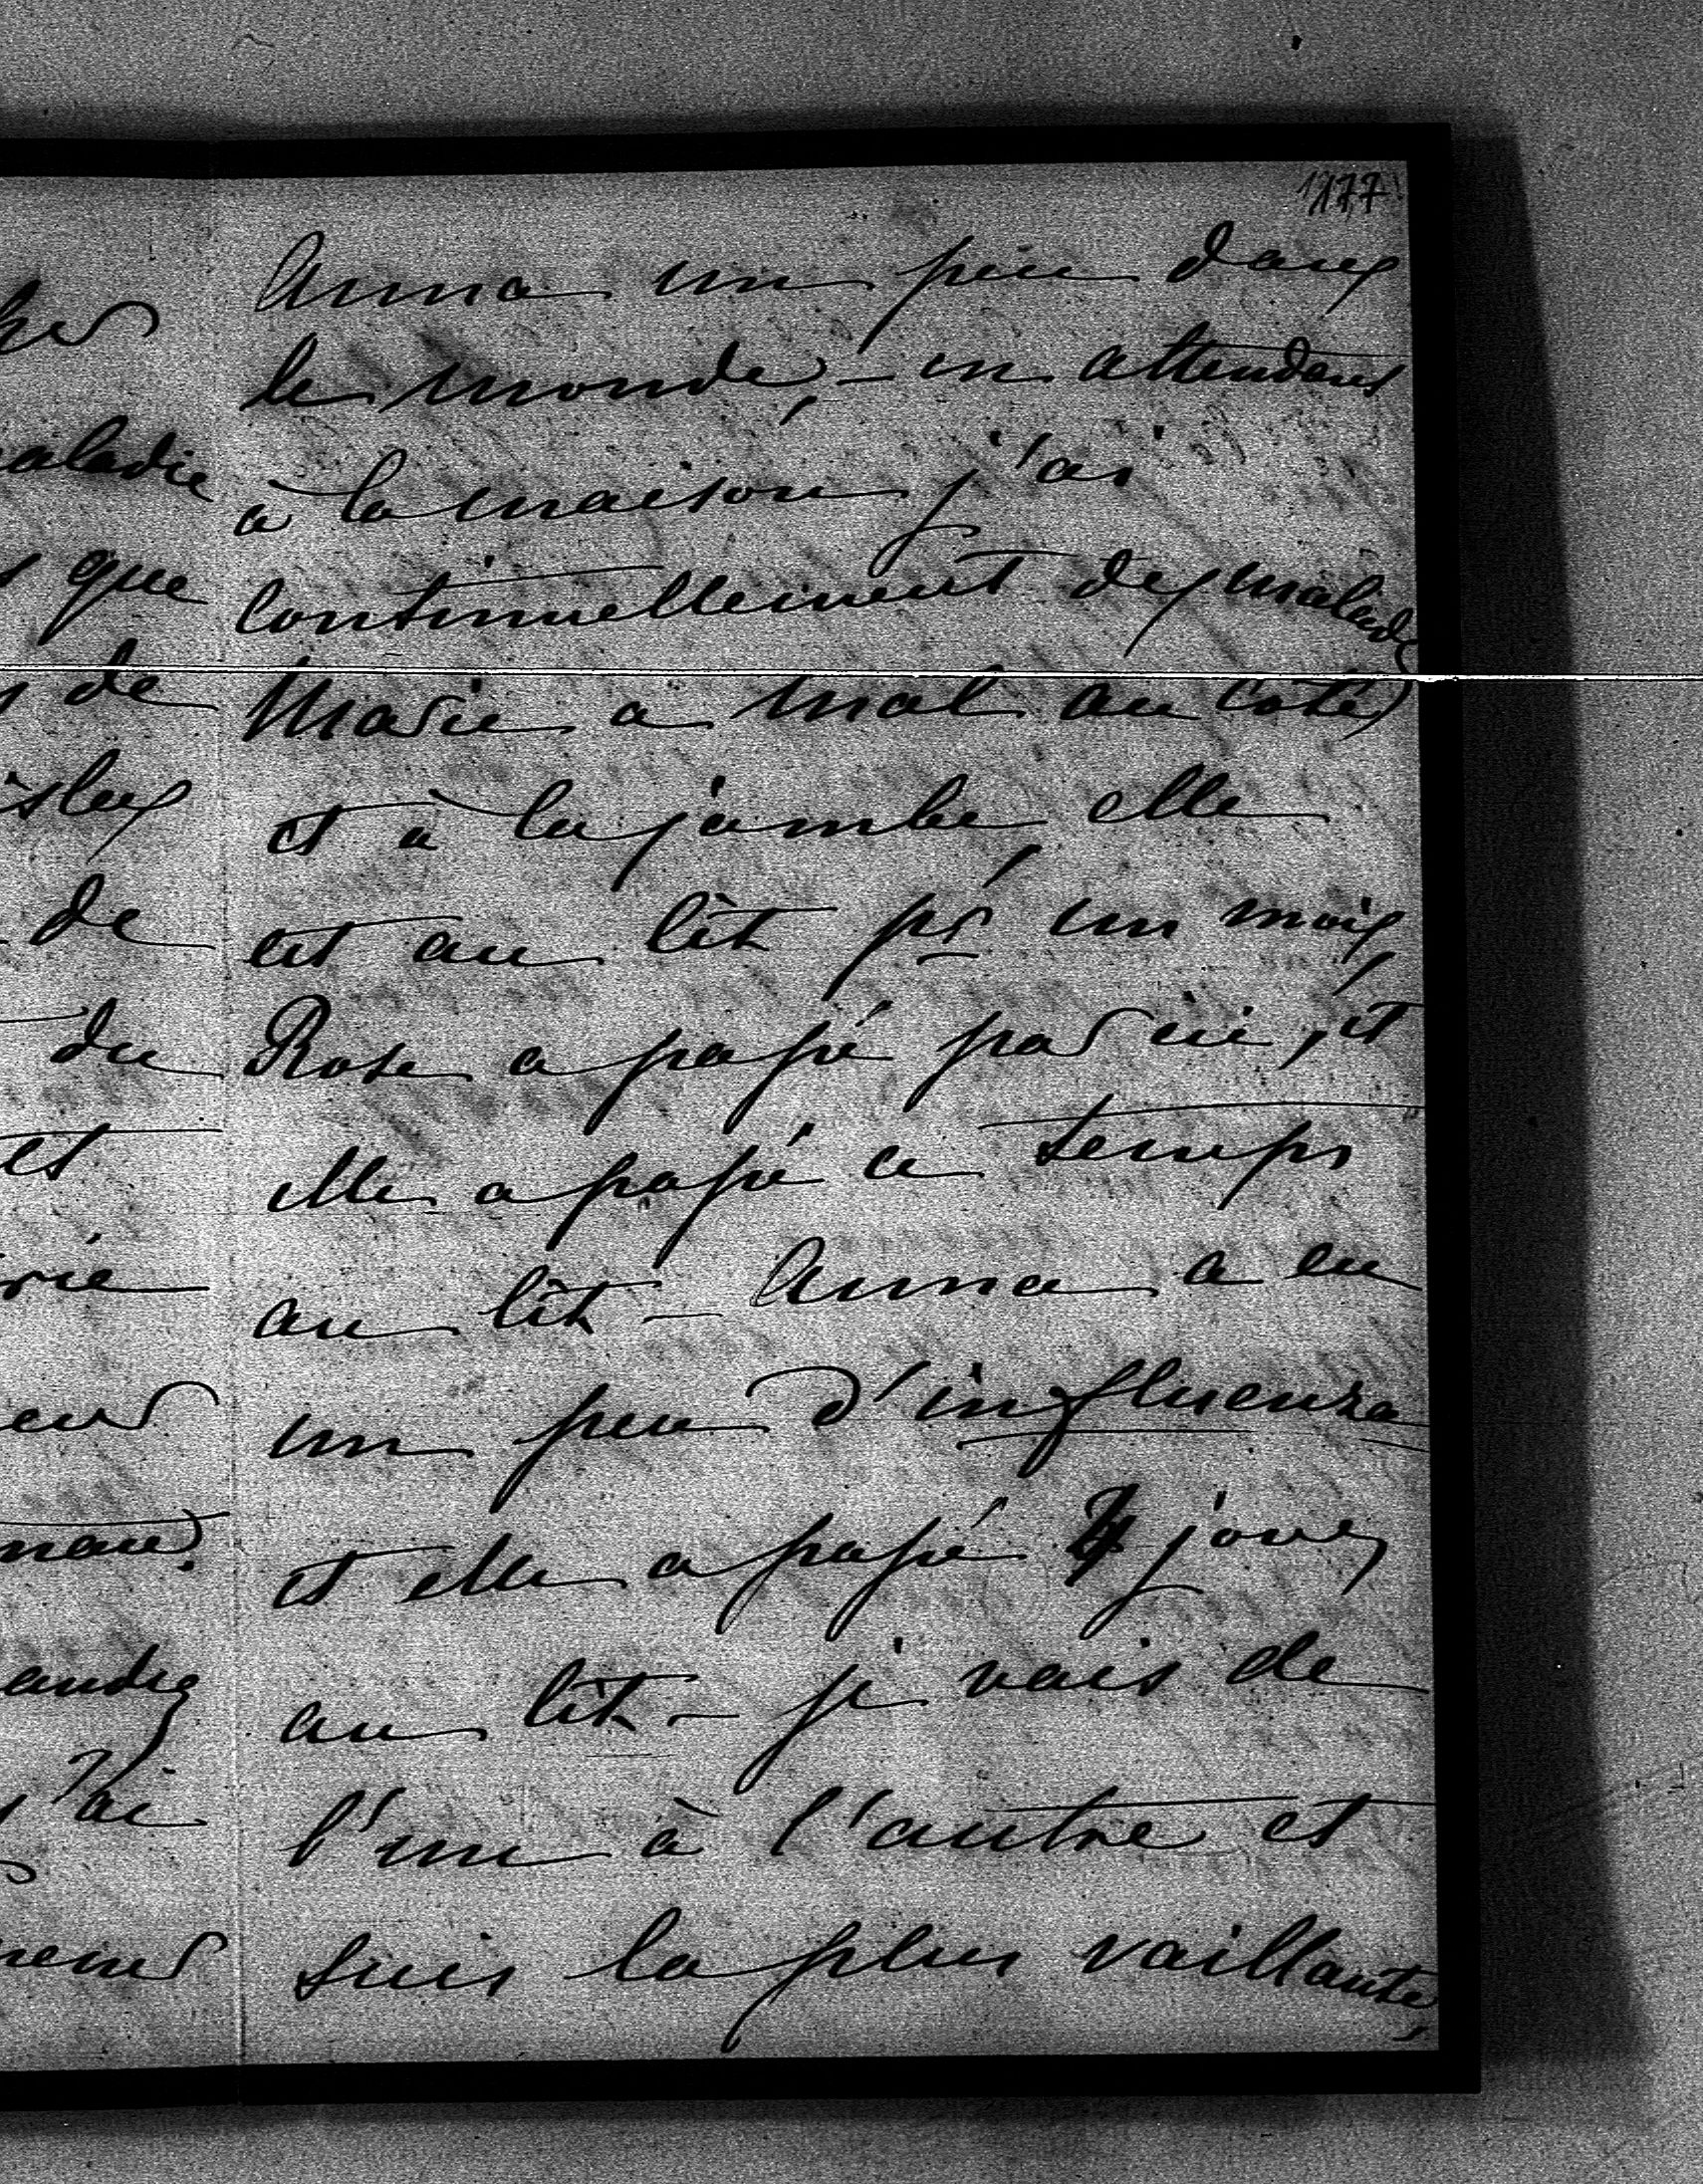 1177
Anna un peu dans
le monde, - en attendant
à la maison j'ai
continuellement des malades
Marie a mal au côté
et à la jambe, elle
est au lit pr un mois,
Rose a passé par ici, et
elle a passé ce temps
au lit - Anna a eu
un peu d'influenza
et elle a passé 4 jours
au lit - je vais de
l'une à l'autre et
suis la plus vaillante,
maladie
que
de
de
du
et
ai